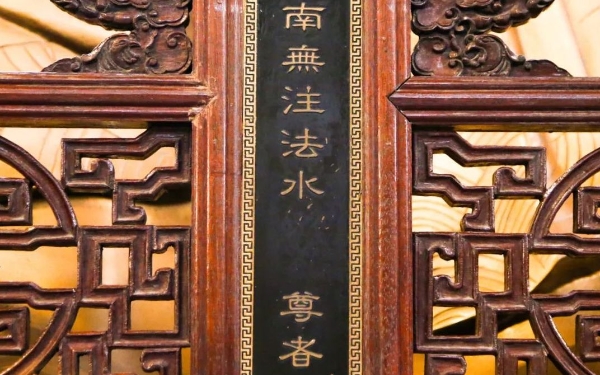 南無注法水 尊者